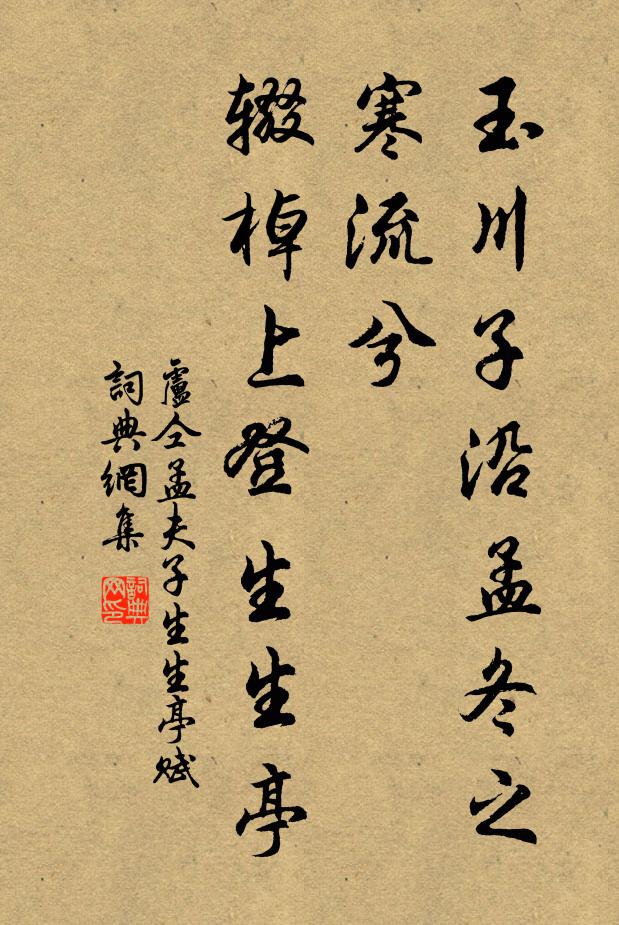 玉川子沿孟冬之
寒流兮
辍棹上登生生亭
盧仝孟夫子生生亭赋
詞典網集
詞典
网印